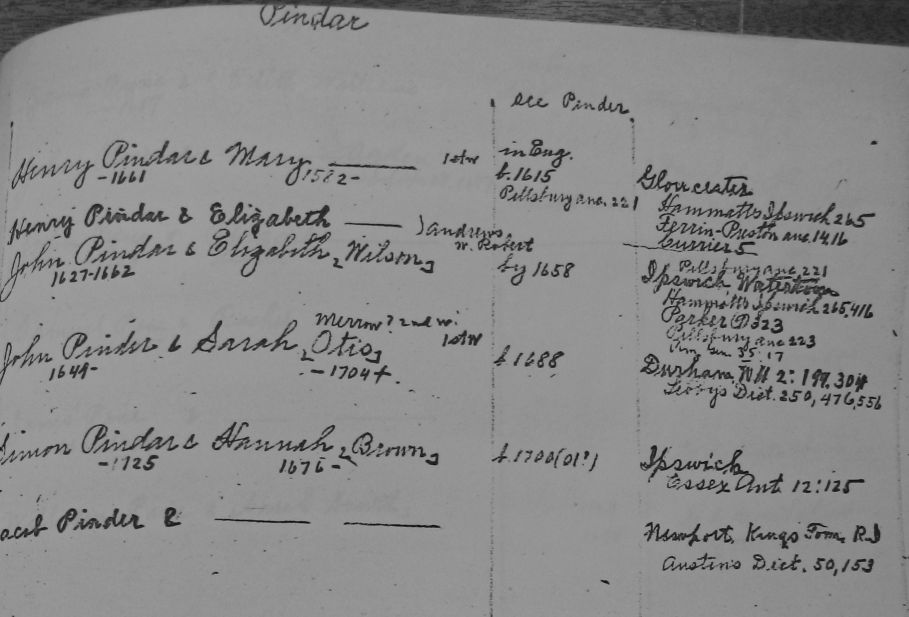 Pindar
see Pinder
Henry Pindar & Mary ——— 1st w
-1661 1582-
in Eng.
b. 1615
Pillsbury anc. 221
Gloucester
Hammatts Ipswich 265
Perrin-Preston anc. 14,16
Currier 5
Henry Pindar & Elizabeth ——— ) Andrews,
w. Robert
John Pindar & Elizabeth [Wilson]
1627-1662
by 1658
Pillsbury anc. 221
Ipswich, Watertown
Hammatts Ipswich 265, 416
Parker D 323
Pillsbury anc 223
35:17
John Pinder & Sarah [Otis] 1st w
Merrow? 2nd w.
1649- -1704+
b 1688
Durham, NH 2:199, 304
Libbys Dict. 250, 476, 556
Simon Pindar & Hannah [Brown]
-1725 1676-
b. 1700 (01?)
Ipswich
Essex Ant 12:125
Jacob Pinder & ——— ———
Newport, Kings Town, R.I
Austin's Dict. 50, 153